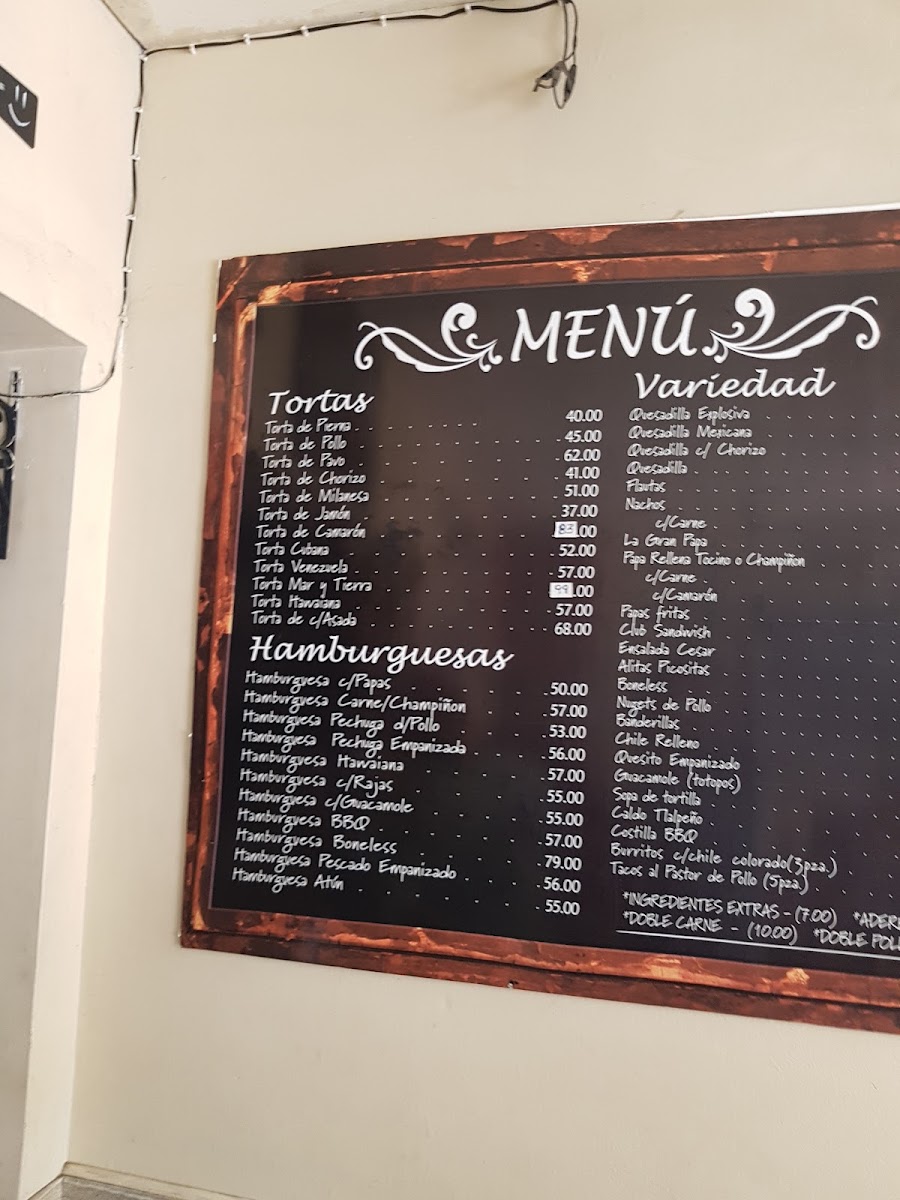 MENÚ
Tortas
Torta de Pierna 40.00
Torta de Pollo 45.00
Torta de Pavo 62.00
Torta de Chorizo 41.00
Torta de Milanesa 51.00
Torta de Jamón 37.00
Torta de Camarón 83.00
Torta Cubana 52.00
Torta Venezuela 57.00
Torta Mar y Tierra 99.00
Torta Hawaiana 57.00
Torta de c/Asada 68.00
Hamburguesas
Hamburguesa c/Papas 50.00
Hamburguesa Carne/Champiñon 57.00
Hamburguesa Pechuga d/Pollo 53.00
Hamburguesa Pechuga Empanizada 56.00
Hamburguesa Hawaiana 57.00
Hamburguesa c/Rajas 55.00
Hamburguesa c/Guacamole 55.00
Hamburguesa BBQ 57.00
Hamburguesa Boneless 79.00
Hamburguesa Pescado Empanizado 56.00
Hamburguesa Atún 55.00
Variedad
Quesadilla Explosiva
Quesadilla Mexicana
Quesadilla c/ Chorizo
Quesadilla
Flautas
Nachos
c/Carne
La Gran Papa
Papa Rellena Tocino o Champiñon
c/Carne
c/Camarón
Papas fritas
Club Sandwish
Ensalada Cesar
Alitas Picositas
Boneless
Nugets de Pollo
Banderillas
Chile Relleno
Quesito Empanizado
Guacamole (totopos)
Sopa de tortilla
Caldo Tlalpeño
Costilla BBQ
Burritos c/chile colorado(3pza.)
Tacos al Pastor de Pollo (5pza.)
*INGREDIENTES EXTRAS - (7.00) *ADERE
*DOBLE CARNE - (10.00) *DOBLE POLL